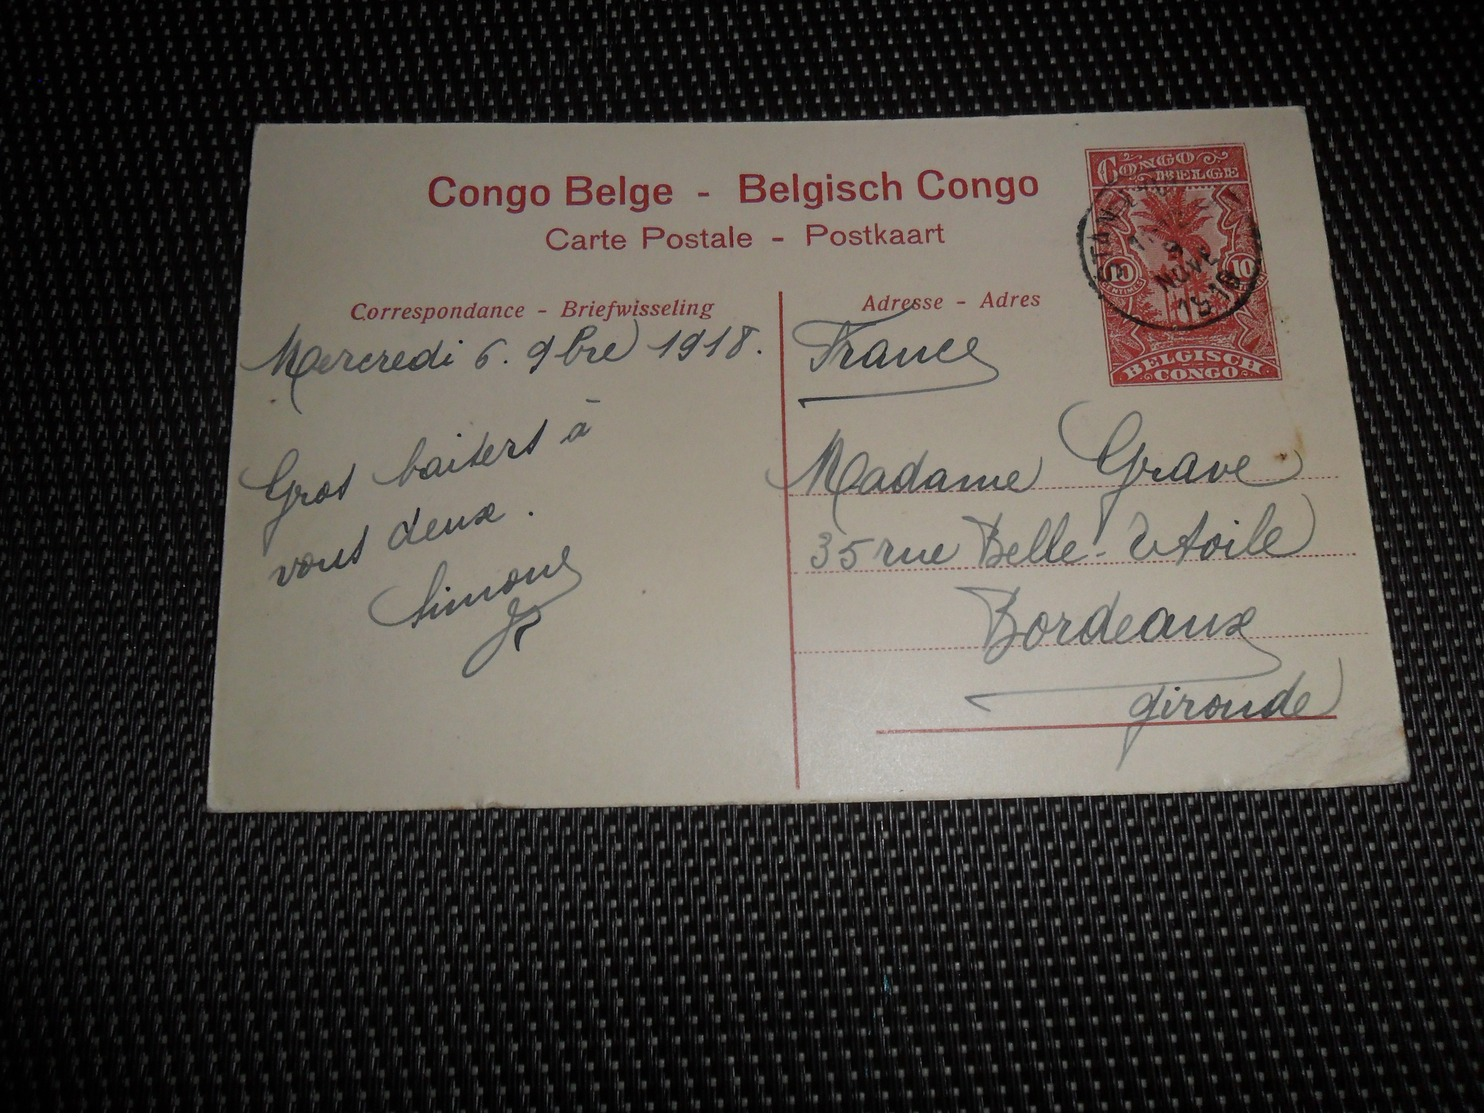 Congo Belge - Belgisch Congo
Carte Postale - Postkaart
Correspondance - Briefwisseling
Mercredi 6. 9bre 1918.
Gros baisers à
vous deux.
Simone
Adresse - Adres
France
Madame Grave
35 rue Belle-Etoile
Bordeaux
Gironde
CONGO
BELGE
10
CENTIMES
10
BELGISCH
CONGO
9
NOVE
1918